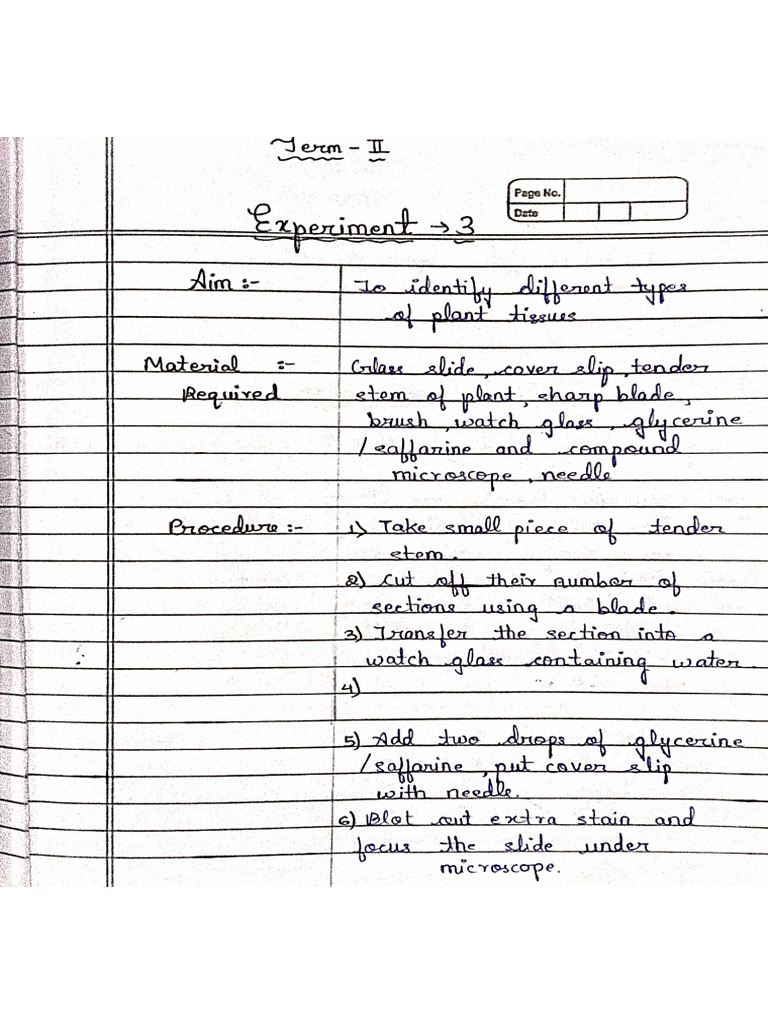 Term - II
Page No.
Date
Experiment → 3
Aim :- To identify different types
of plant tissues
Material :- Glass slide, cover slip, tender
Required stem of plant, sharp blade,
brush, watch glass, glycerine
/saffarine and compound
microscope, needle
Procedure :- 1) Take small piece of tender
stem.
2) Cut off their number of
sections using a blade.
3) Transfer the section into a
watch glass containing water.
4)
5) Add two drops of glycerine
/saffarine, put cover slip
with needle.
6) Blot out extra stain and
focus the slide under
microscope.